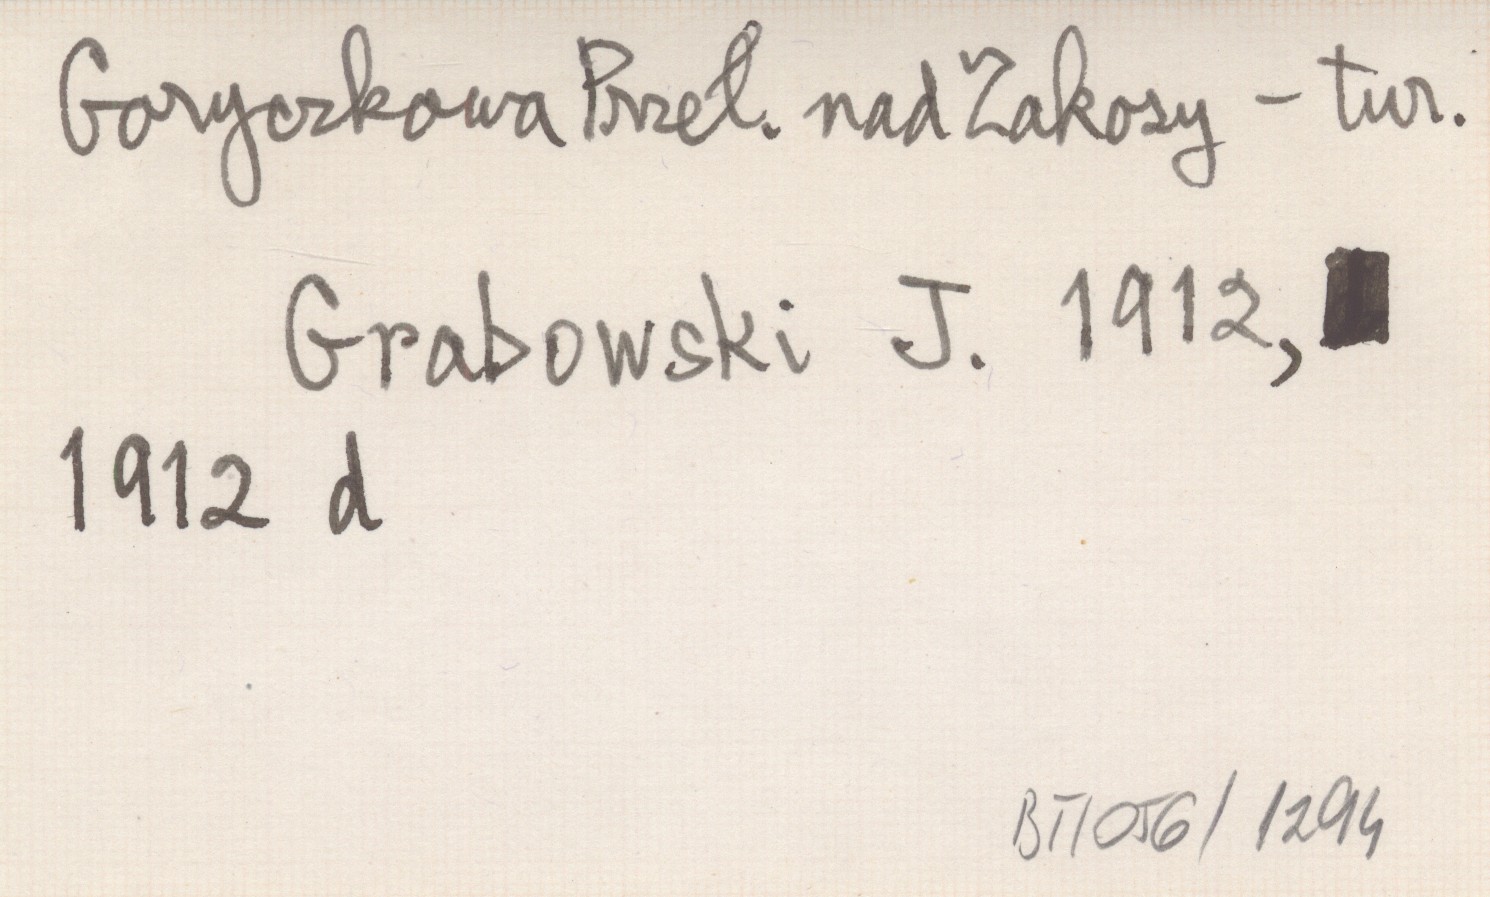 Goryczkowa Przeł. nad Zakosy - tur.
Grabowski J. 1912,
1912 d
BT/056/1294